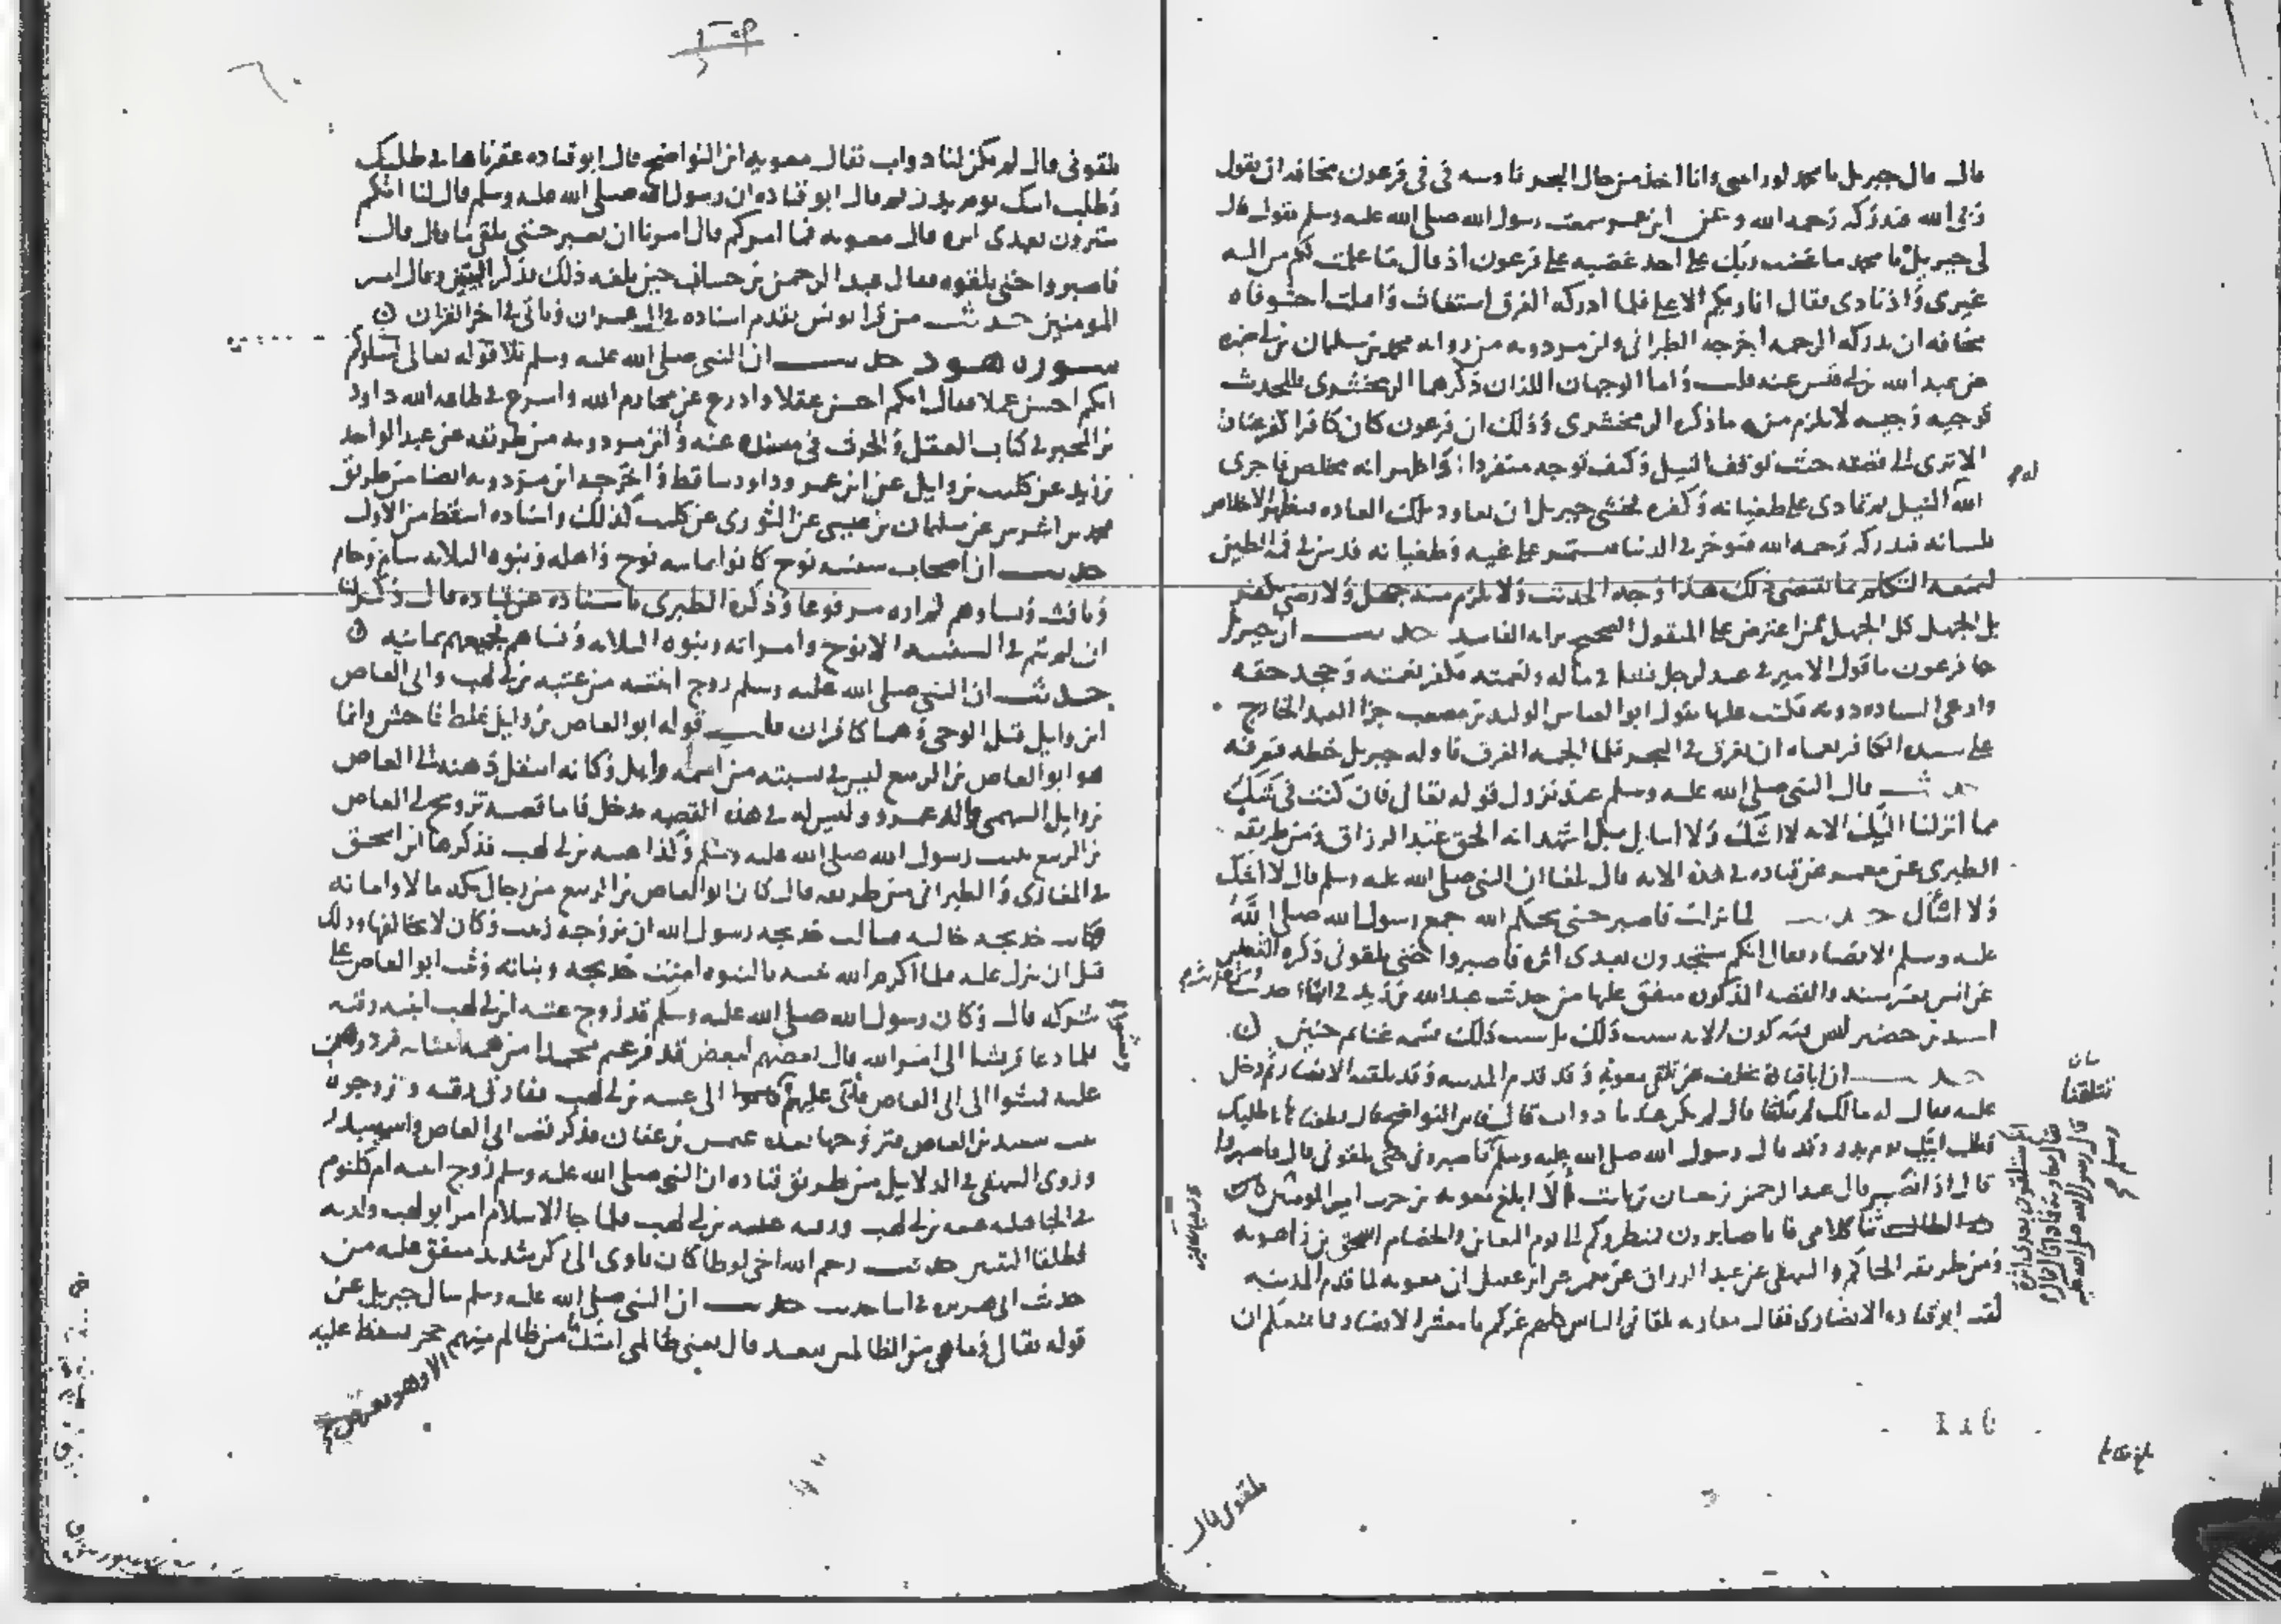 قال قال جبريل يا محمد لو رأيتني وانا اخذ من حال البحر فادسه في في فرعون مخافة ان يقول
ربي الله فتدركه رحمه الله وعن ابن عمر سمعت رسول الله صلى الله عليه وسلم يقول قال
لي جبريل يا محمد ما غضب ربك على احد غضبه على فرعون اذ قال ما علمت لكم من اله
غيري واذ نادى فقال انا ربكم الاعلى فلما ادركه الغرق استغاث واقبلت احشو فاه
مخافه ان تدركه الرحمه اخرجه الطبراني وابن مردويه من روايه محمد بن سليمان بن ابي ضمره
عن عبد الله بن ابي قيس عنه قلت واما الوجهان اللذان ذكرهما الزمخشري فللحديث
توجيه وجيه لا يلزم منه ما ذكره الزمخشري وذلك ان فرعون كان كافرا كفر عناد
الا ترى الى قصته حيث توقف النيل وكيف توجه منفردا واظهر انه مخلص فاجرى
الله النيل ثم تمادى على طغيانه وكفره فخشي جبريل ان يعاود تلك العاده فيظهر الاخلاص
بلسانه فتدركه رحمه الله فيؤخر في الدنيا فيستمر على غيه وطغيانه فدس في فمه الطين
ليمنعه التكلم بما يقتضي ذلك هذا وجه الحديث ولا يلزم منه جهل ولا رضى بكفر
بل الجهل كل الجهل ممن اعترض على المنقول الصحيح برايه الفاسد حديث ان جبريل
جا فرعون ما قول الامير في عبد لرجل نشا في ماله ونعمته فكفر نعمته وجحد حقه
وادعى السياده دونه فكتب عليها يقول ابو العباس الوليد بن مصعب جزا العبد الخارج
على سيده الكافر نعماه ان يغرق في البحر فلما الجمه الغرق ناوله جبريل خطه فعرفه
حديث قال النبي صلى الله عليه وسلم عند نزول قوله تعالى فان كنت في شك
مما انزلنا اليك الايه لا اشك ولا اسال بل اشهد انه الحق عبد الرزاق ومن طريقه
الطبري عن معمر عن قتاده في هذه الايه قال بلغنا ان النبي صلى الله عليه وسلم قال لا اشك
ولا اسأل حديث لما نزلت فاصبر حتى يحكم الله جمع رسول الله صلى الله
عليه وسلم الانصار فقال انكم ستجدون بعدي اثره فاصبروا حتى تلقوني ذكره الثعلبي
عن انس بغير سند والقصه المذكوره متفق عليها من حديث عبد الله بن زيد
اسيد بن حضير ليس فيه كون الايه سبب ذلك بل سبب ذلك قسمه غنائم حنين
حديث ان ابا قتاده تخلف عن تلقي معويه وقد قدم المدينه وقد تلقته الانصار ثم دخل
عليه فقال له مالك لم تلقنا قال لم يكن عندنا دواب قال فاين النواضح قال قطعناها في طلبك
وطلب ابيك يوم بدر وقد قال رسول الله صلى الله عليه وسلم فاصبروا حتى تلقوني قال فاصبروا
قال اذا نصبر قال عبد الرحمن بن حسان بن ثابت ألا ابلغ معويه بن حرب امير المومنين
نثا كلامي فانا صابرون فمنظروكم الى يوم التغابن والخصام اسحق بن راهويه
ومن طريقه الحاكم والبيهقي عن عبد الرزاق عن معمر عن ابن عقيل ان معويه لما قدم المدينه
لقيه ابو قتاده الانصاري فقال معاويه تلقاني الناس كلهم غيركم يا معشر الانصار فما منعكم ان
تلقوني قال
تلقوني قال لم يكن لنا دواب فقال معويه اين النواضح قال ابو قتاده عقرناها في طلبك
وطلب ابيك يوم بدر ثم قال ابو قتاده ان رسول الله صلى الله عليه وسلم قال لنا انكم
سترون بعدي اثره قال معويه فما امركم قال امرنا ان نصبر حتى نلقاه قال
فاصبروا حتى تلقوه فقال عبد الرحمن بن حسان حين بلغه ذلك فذكر البيتين وقال امير
المومنين حديث من قرا يونس تقدم اسناده في ال عمران وياتي في اخر القران
سوره هود حديث ان النبي صلى الله عليه وسلم تلا قوله تعالى ليبلوكم
ايكم احسن عملا فقال ايكم احسن عقلا واورع عن محارم الله واسرع في طاعه الله داود
بن المحبر في كتاب العقل والحرث في مسنده عنه وابن مردويه من طريقه عن عبد الواحد
بن زيد عن كليب بن وايل عن ابن عمر وداود ساقط واخرجه ابن مردويه ايضا من طريق
محمد بن اشرس عن سليمان بن عيسى عن الثوري عن كليب كذلك واسناده اسقط من الاول
حديث ان اصحاب سفينه نوح كانوا ثمانيه نوح واهله وبنوه الثلاثه سام وحام
ويافث ونساوهم لم اره مرفوعا وذكره الطبري باسناده عن قتاده قال ذكر لنا
ان لم يتم في السفينه الا نوح وامراته وبنوه الثلاثه ونساهم فجميعهم ثمانيه
حديث ان النبي صلى الله عليه وسلم زوج ابنتيه من عتبه بن ابي لهب وابي العاص
ابن وايل قبل الوحي وهما كافران قلت قوله ابو العاص بن وايل غلط فاحش وانما
هو ابو العاص بن الربيع ليس في نسبته من اسمه وايل وكانه انتقل ذهنه الى العاص
بن وايل السهمي والد عمرو وليس له في هذه القصه مدخل فاما قصه تزويج ابي العاص
بن الربيع بنت رسول الله صلى الله عليه وسلم وكذا عتبه بن ابي لهب فذكرها ابن اسحق
في المغازي والطبراني من طريقه قال كان ابو العاص بن الربيع من رجال مكه مالا وامانه
وكانت خديجه خالته فسالت خديجه رسول الله ان يزوجه زينب وكان لا يخالفها وذلك
قبل ان ينزل عليه فلما اكرم الله نبيه بالنبوه امنت خديجه وبناته وثبت ابو العاص على
شركه قال وكان رسول الله صلى الله عليه وسلم قد زوج عتبه ابن ابي لهب ابنته رقيه
فلما دعا قريشا الى امر الله قال بعضهم لبعض قد فرغتم محمدا من همه ببناته فردوهن
عليه فمشوا الى ابي العاص فأبى عليهم ثم مشوا الى عتبه بن ابي لهب ففارق رقيه وتزوج
بنت سعيد بن العاص فتزوجها بعده عثمن بن عفان فذكر قصه ابي العاص واسره ببدر
وروى البيهقي في الدلايل من طريق قتاده ان النبي صلى الله عليه وسلم زوج ابنته ام كلثوم
في الجاهليه عتيبه بن ابي لهب ورقيه عتبه بن ابي لهب فلما جا الاسلام امر ابو لهب ولديه
فطلقا ابنتيه حديث رحم الله اخي لوطا كان ياوي الى ركن شديد متفق عليه من
حديث ابي هريره في اثنا حديث حديث ان النبي صلى الله عليه وسلم سال جبريل عن
قوله تعالى وما هي من الظالمين ببعيد قال يعني ظالمي امتك ما من ظالم منهم